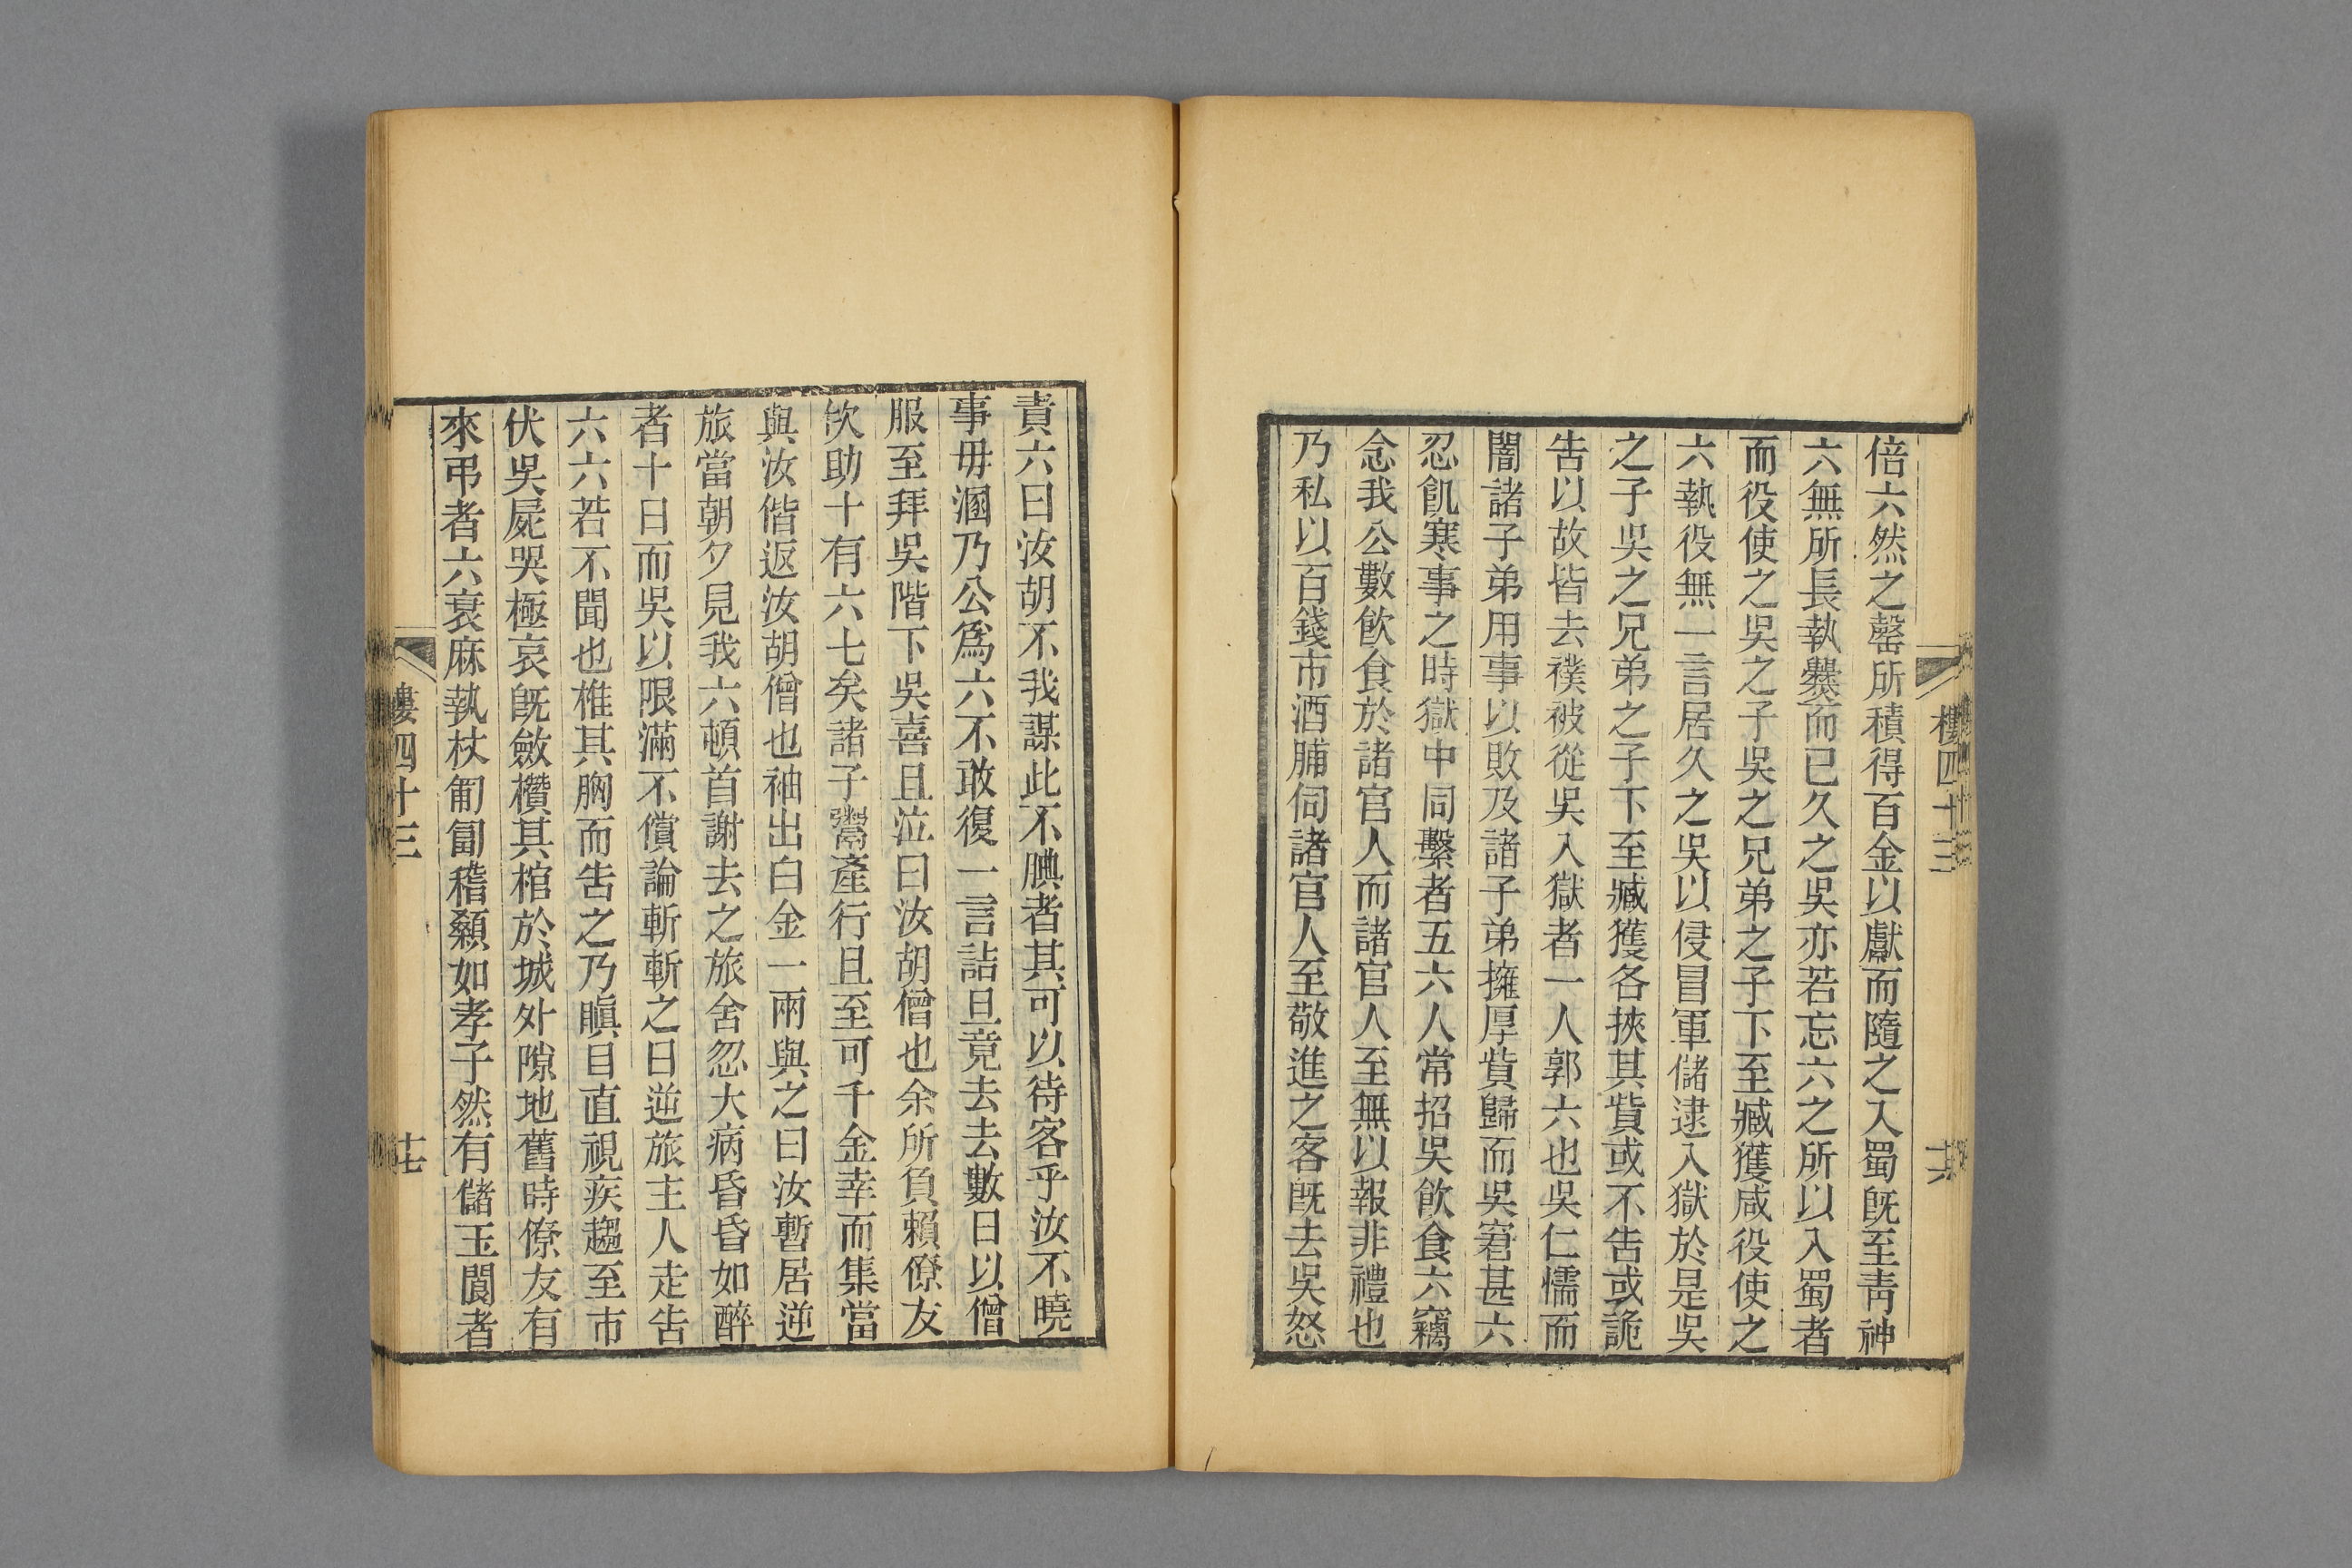 樓四十三
十六
倍六然之罄所積得百金以獻而隨之入蜀旣至靑神
六無所長執爨而已久之吳亦若忘六之所以入蜀者
而役使之吳之子吳之兄弟之子下至臧獲咸役使之
六執役無一言居久之吳以侵冒軍儲逮入獄於是吳
之子吳之兄弟之子下至臧獲各挾其貲或不告或詭
告以故皆去襆被從吳入獄者一人郭六也吳仁懦而
闇諸子弟用事以敗及諸子弟擁厚貲歸而吳窘甚六
忍飢寒事之時獄中同繫者五六人常招吳飮食六竊
念我公數飮食於諸官人而諸官人至無以報非禮也
乃私以百錢市酒脯伺諸官人至敬進之客旣去吳怒
責六曰汝胡不我謀此不腆者其可以待客乎汝不曉
事毋溷乃公爲六不敢復一言詰旦竟去去數日以僧
服至拜吳階下吳喜且泣曰汝胡僧也余所負賴僚友
佽助十有六七矣諸子鬻產行且至可千金幸而集當
與汝偕返汝胡僧也袖出白金一兩與之曰汝暫居逆
旅當朝夕見我六頓首謝去之旅舍忽大病昏昏如醉
者十日而吳以限滿不償論斬斬之日逆旅主人走告
六六若不聞也椎其胸而告之乃瞋目直視疾趨至市
伏吳屍哭極哀旣斂欑其棺於城外隙地舊時僚友有
來弔者六衰麻執杖匍匐稽顙如孝子然有儲玉閬者
樓四十三
十七